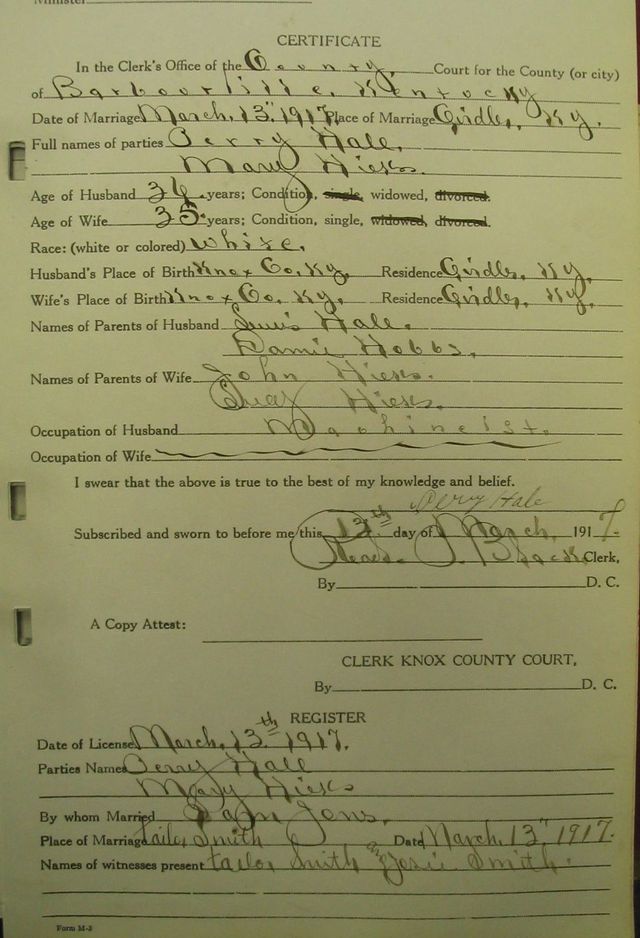 Minister
CERTIFICATE
In the Clerk's Office of the County, Court for the County (or city)
of Barbourville, Kentucky
Date of Marriage March, 13th 1917, Place of Marriage Girdler, Ky.
Full names of parties Perry Hale,
Mary Hicks.
Age of Husband 34 years; Condition, single, widowed, divorced.
Age of Wife 35 years; Condition, single, widowed, divorced.
Race: (white or colored) White.
Husband's Place of Birth Knox Co, Ky, Residence Girdler, Ky,
Wife's Place of Birth Knox Co, Ky, Residence Girdler, Ky,
Names of Parents of Husband Hale.
Hobbs,
Names of Parents of Wife John Hicks.
Hicks.
Occupation of Husband Machineist.
Occupation of Wife
I swear that the above is true to the best of my knowledge and belief.
Perry Hale
Subscribed and sworn to before me this 12th day of March, 1917.
Read P. Black Clerk,
By D. C.
A Copy Attest:
CLERK KNOX COUNTY COURT,
By D. C.
REGISTER
Date of License March, 13th 1917.
Parties Names Perry Hall
Mary Hicks
By whom Married Jons,
Place of Marriage tailor Smith Date March, 13" 1917.
Names of witnesses present tailor Smith an Josie Smith.
Form M-3